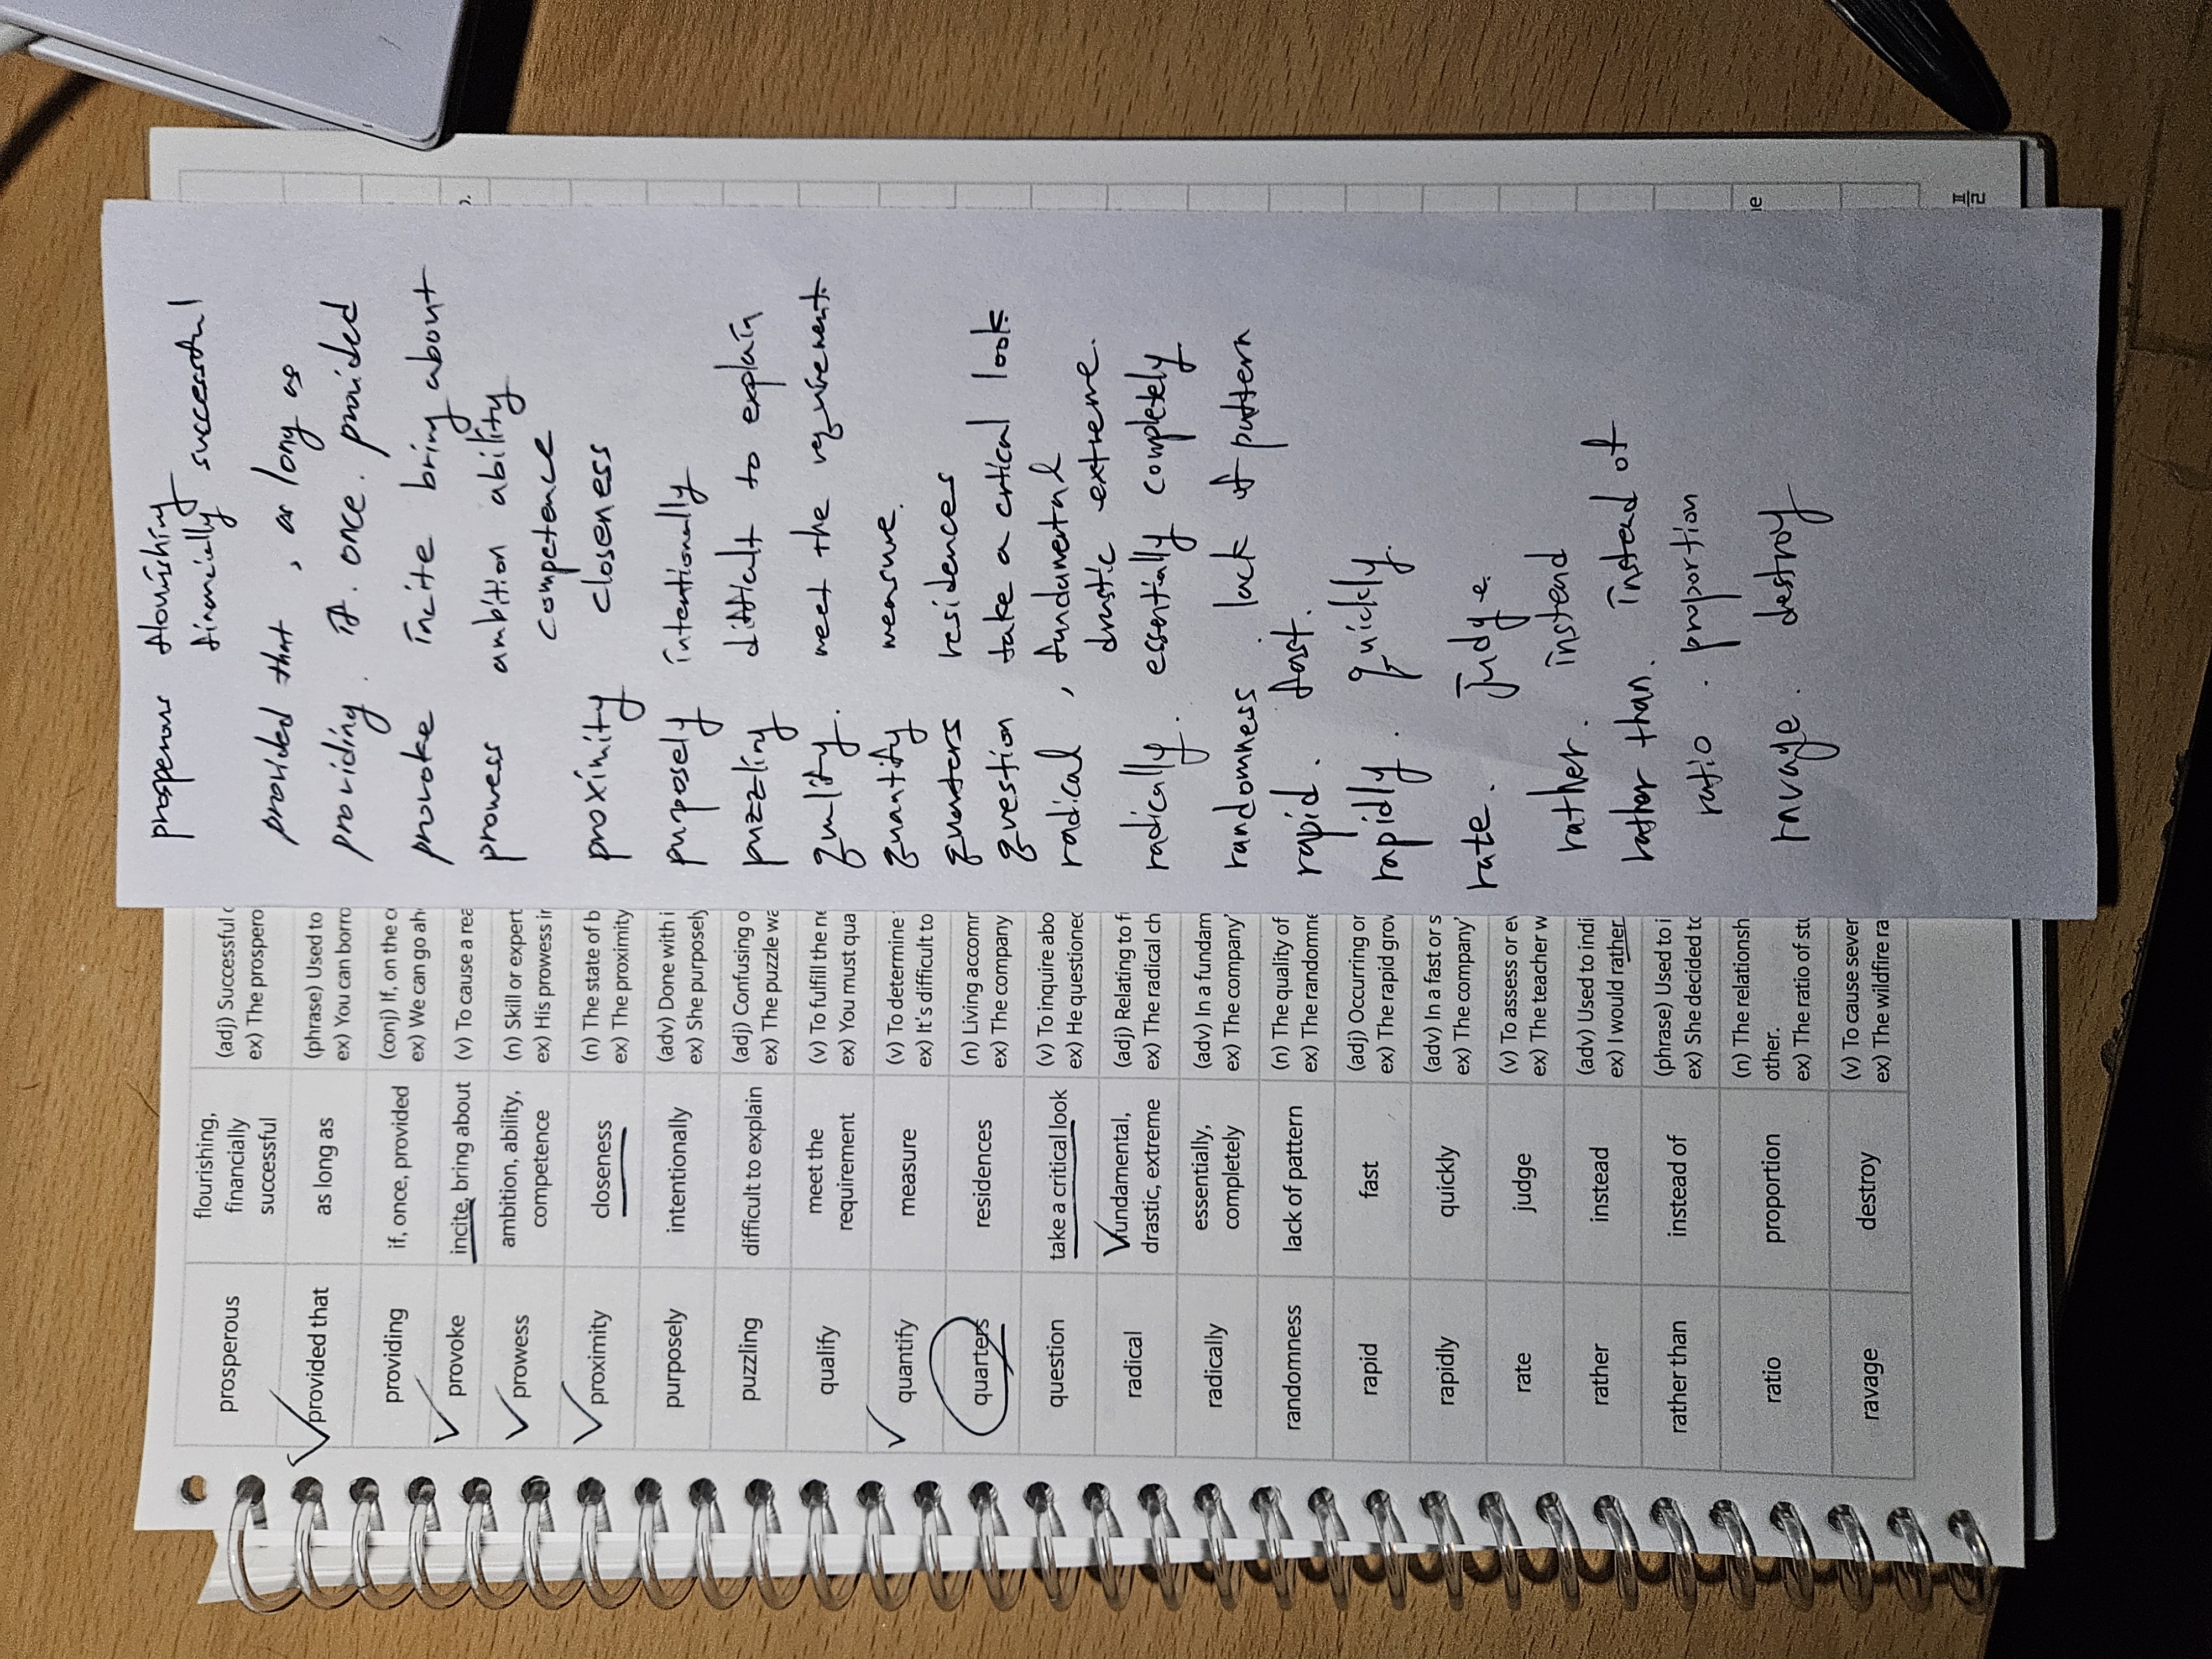 prosperous flourishing, financially successful (adj) Successful
ex) The prospero
provided that as long as (phrase) Used to
ex) You can borro
providing if, once, provided (conj) If, on the c
ex) We can go ah
provoke incite, bring about (v) To cause a rea
prowess ambition, ability, competence (n) Skill or expert
ex) His prowess in
proximity closeness (n) The state of b
ex) The proximity
purposely intentionally (adv) Done with i
ex) She purposely
puzzling difficult to explain (adj) Confusing o
ex) The puzzle wa
qualify meet the requirement (v) To fulfill the ne
ex) You must qua
quantify measure (v) To determine
ex) It's difficult to
quarters residences (n) Living accomm
ex) The company
question take a critical look (v) To inquire abo
ex) He questioned
radical fundamental, drastic, extreme (adj) Relating to f
ex) The radical ch
radically essentially, completely (adv) In a fundam
ex) The company'
randomness lack of pattern (n) The quality of
ex) The randomne
rapid fast (adj) Occurring or
ex) The rapid grow
rapidly quickly (adv) In a fast or s
ex) The company'
rate judge (v) To assess or ev
ex) The teacher w
rather instead (adv) Used to indi
ex) I would rather
rather than instead of (phrase) Used to i
ex) She decided to
ratio proportion (n) The relationsh
other.
ex) The ratio of stu
ravage destroy (v) To cause sever
ex) The wildfire ra
prosperous flourishing
financially successful
provided that, as long as
providing. if. once. provided
provoke incite bring about
prowess ambition ability
competence
proximity closeness
purposely intentionally
puzzling difficult to explain
qualify. meet the requirement.
quantify measure.
quarters residences
question take a critical look
radical, fundamental
drastic extreme.
radically. essentially completely
randomness lack of pattern
rapid. fast.
rapidly. quickly.
rate. judge.
rather. instead
rather than. instead of
ratio. proportion
ravage. destroy